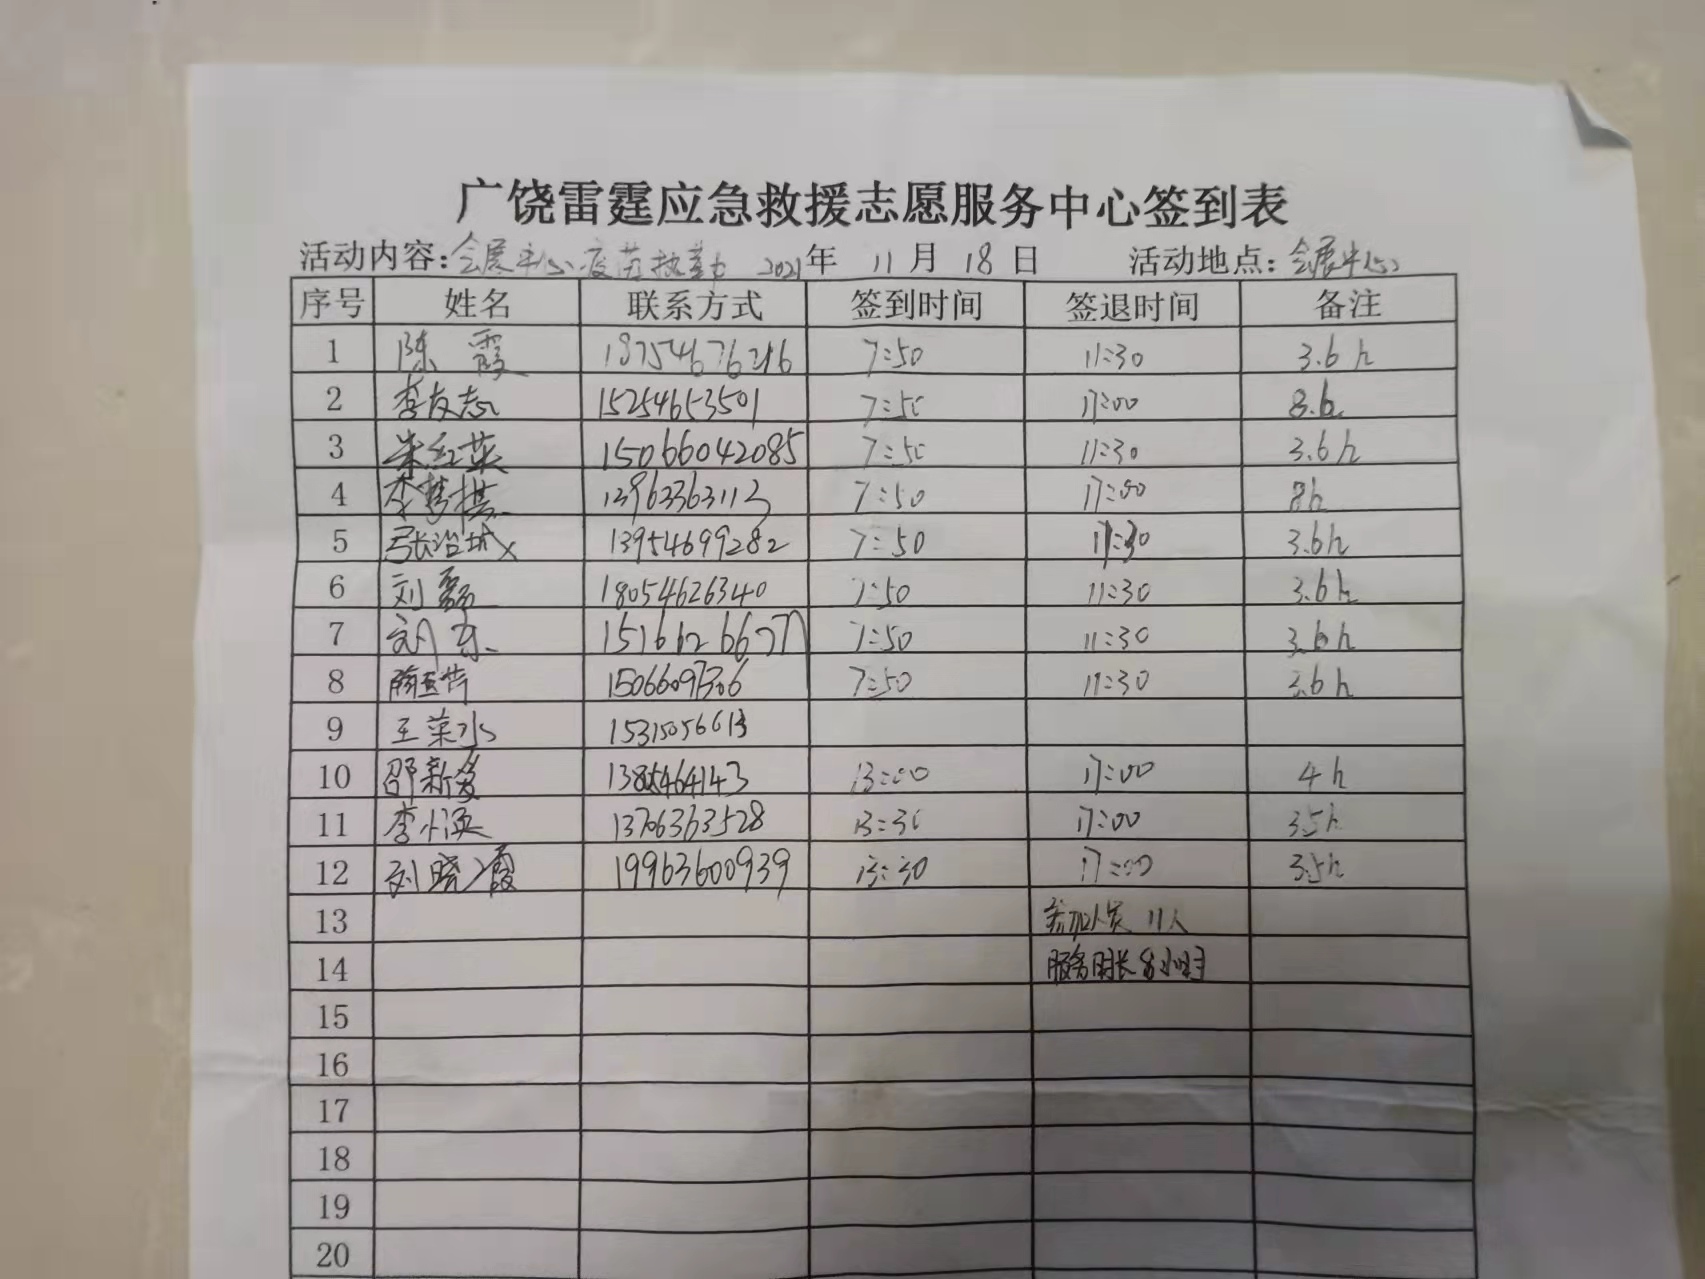 广饶雷霆应急救援志愿服务中心签到表
活动内容：会展中心疫苗执勤 2021年 11月 18日 活动地点：会展中心
序号 姓名 联系方式 签到时间 签退时间 备注
1 陈霞 18754676216 7:50 11:30 3.6h
2 李友志 15254653501 7:50 17:00 8.h
3 朱红英 15066042085 7:50 11:30 3.6h
4 李梦棋 13963363113 7:50 17:00 8h
5 张治城 13954699282 7:50 11:30 3.6h
6 刘磊 18054626340 7:50 11:30 3.6h
7 刘东 7:50 11:30 3.6h
8 7:50 11:30 3.6h
9 王荣水 15315056613
10 邵新爱 13:00 17:00 4h
11 李 13706363528 13:30 17:00 3.5h
12 刘晓霞 19963600939 13:30 17:00 3.5h
13 参加人员 11人
14 服务时长8小时
15
16
17
18
19
20